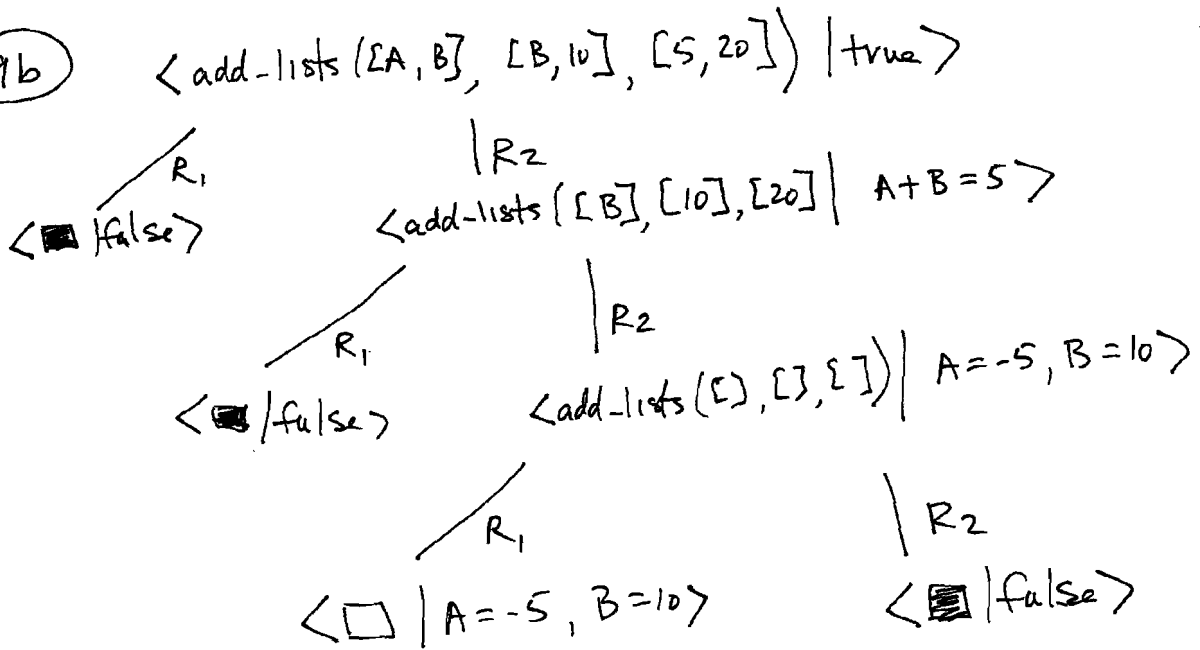 9b <add-lists([A, B], [B, 10], [5, 20]) | true>
R1 | R2
<■ | false> <add-lists([B], [10], [20] | A+B=5>
R1 | R2
<■ | false> <add-lists([], [], []) | A=-5, B=10>
R1 | R2
<□ | A=-5, B=10> <■ | false>